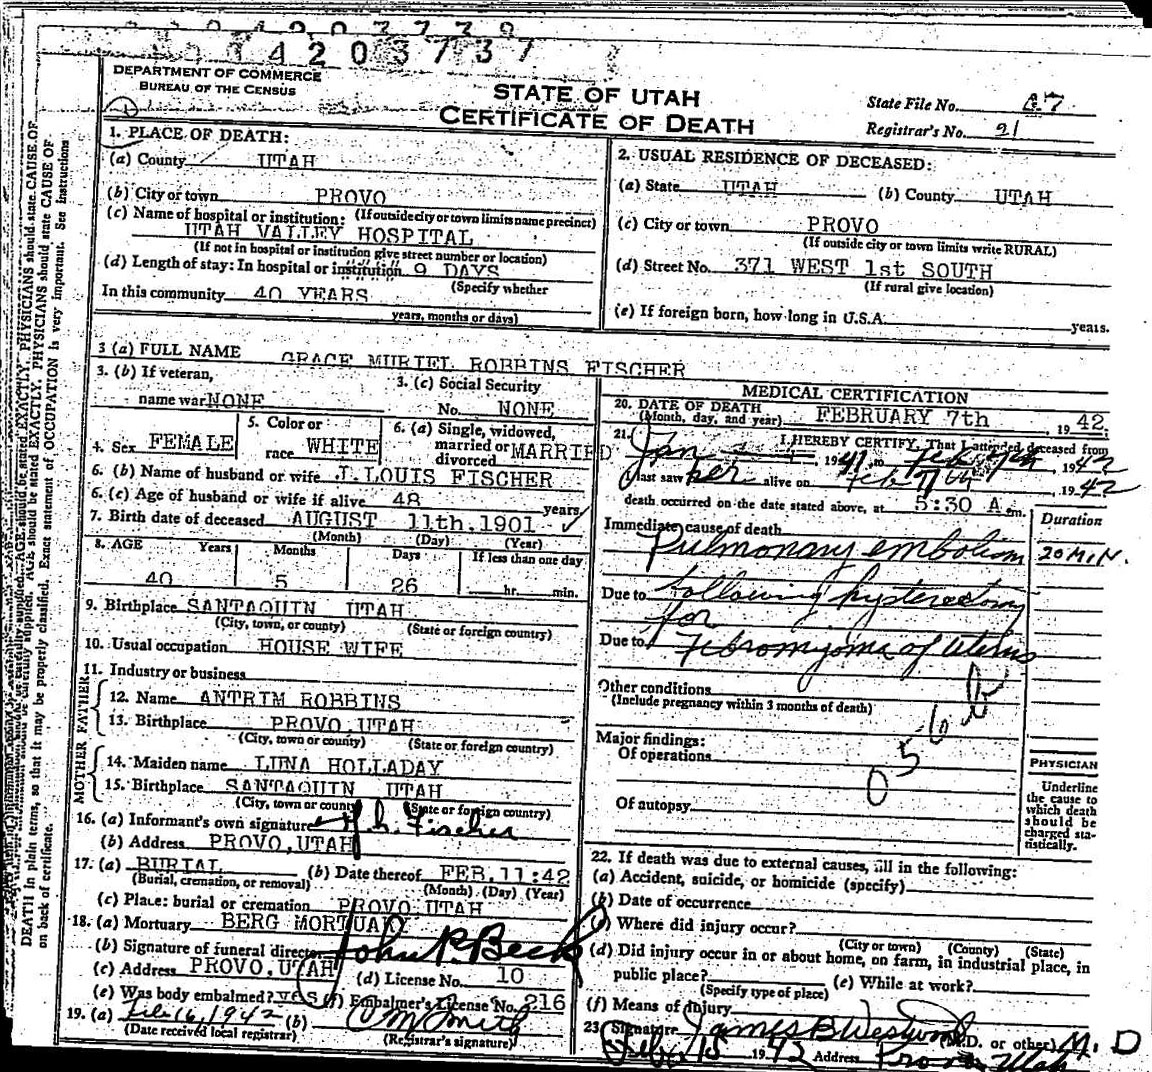 4 2 0 3 7 3 7
DEPARTMENT OF COMMERCE
BUREAU OF THE CENSUS
STATE OF UTAH
CERTIFICATE OF DEATH
State File No. 47
Registrar's No. 21
1. PLACE OF DEATH:
(a) County UTAH
(b) City or town PROVO
(If outside city or town limits name precinct)
(c) Name of hospital or institution:
UTAH VALLEY HOSPITAL
(If not in hospital or institution give street number or location)
(d) Length of stay: In hospital or institution 9 DAYS
(Specify whether
In this community 40 YEARS
years, months or days)
2. USUAL RESIDENCE OF DECEASED:
(a) State UTAH (b) County UTAH
(c) City or town PROVO
(If outside city or town limits write RURAL)
(d) Street No. 371 WEST 1st SOUTH
(If rural give location)
(e) If foreign born, how long in U.S.A. years.
3 (a) FULL NAME GRACE MURIEL ROBBINS FISCHER
3. (b) If veteran,
name war NONE
3. (c) Social Security
No. NONE
4. Sex FEMALE
5. Color or
race WHITE
6. (a) Single, widowed,
married or MARRIED
divorced
6. (b) Name of husband or wife J. LOUIS FISCHER
6. (c) Age of husband or wife if alive 48 years
7. Birth date of deceased AUGUST 11th. 1901
(Month) (Day) (Year)
8. AGE Years Months Days If less than one day
40 5 26 hr. min.
9. Birthplace SANTAQUIN UTAH
(City, town, or county) (State or foreign country)
10. Usual occupation HOUSE WIFE
11. Industry or business
FATHER
12. Name ANTRIM ROBBINS
13. Birthplace PROVO, UTAH
(City, town or county) (State or foreign country)
MOTHER
14. Maiden name LUNA HOLLADAY
15. Birthplace SANTAQUIN UTAH
(City, town or county (State or foreign country)
16. (a) Informant's own signature Fischer
(b) Address PROVO, UTAH
17. (a) BURIAL (b) Date thereof FEB. 11:42
(Burial, cremation, or removal) (Month) (Day) (Year)
(c) Place: burial or cremation PROVO UTAH
18. (a) Mortuary BERG MORTUARY
(b) Signature of funeral director John P. Beck
(c) Address PROVO, UTAH (d) License No. 10
(e) Was body embalmed? yes (f) Embalmer's License No. 216
19. (a) Feb 16, 1942 (b) Smith
(Date received local registrar) (Registrar's signature)
MEDICAL CERTIFICATION
20. DATE OF DEATH
(Month, day, and year) FEBRUARY 7th 1942.
21. I HEREBY CERTIFY, That I attended deceased from
Jan 1941, to Feb 7th, 1942
I last saw her alive on Feb 7th, 1942
death occurred on the date stated above, at 5:30 A.m.
Duration
Immediate cause of death
Pulmonary embolism 20 MIN.
Due to following hysterectomy
for
Due to Fibromyoma of uterus
Other conditions
(Include pregnancy within 3 months of death)
Major findings:
Of operations
Of autopsy
0 5 6 b
PHYSICIAN
Underline
the cause to
which death
should be
charged sta-
tistically.
22. If death was due to external causes, fill in the following:
(a) Accident, suicide, or homicide (specify)
(b) Date of occurrence
(c) Where did injury occur?
(City or town) (County) (State)
(d) Did injury occur in or about home, on farm, in industrial place, in
public place? (e) While at work?
(Specify type of place)
(f) Means of injury
23. Signature James B Westwood (M.D. or other) M. D
Feb 15 1942 Address Provo Utah
DEATH in plain terms, so that it may be properly classified. Exact statement of OCCUPATION is very important. See instructions
on back of certificate.